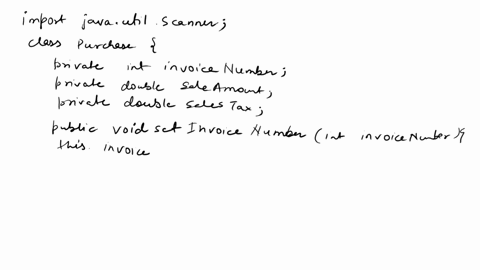 import java.util.Scanner;
class Purchase {
private int invoiceNumber;
private double saleAmount;
private double salesTax;
public void setInvoiceNumber (int invoiceNumber){
this. invoice